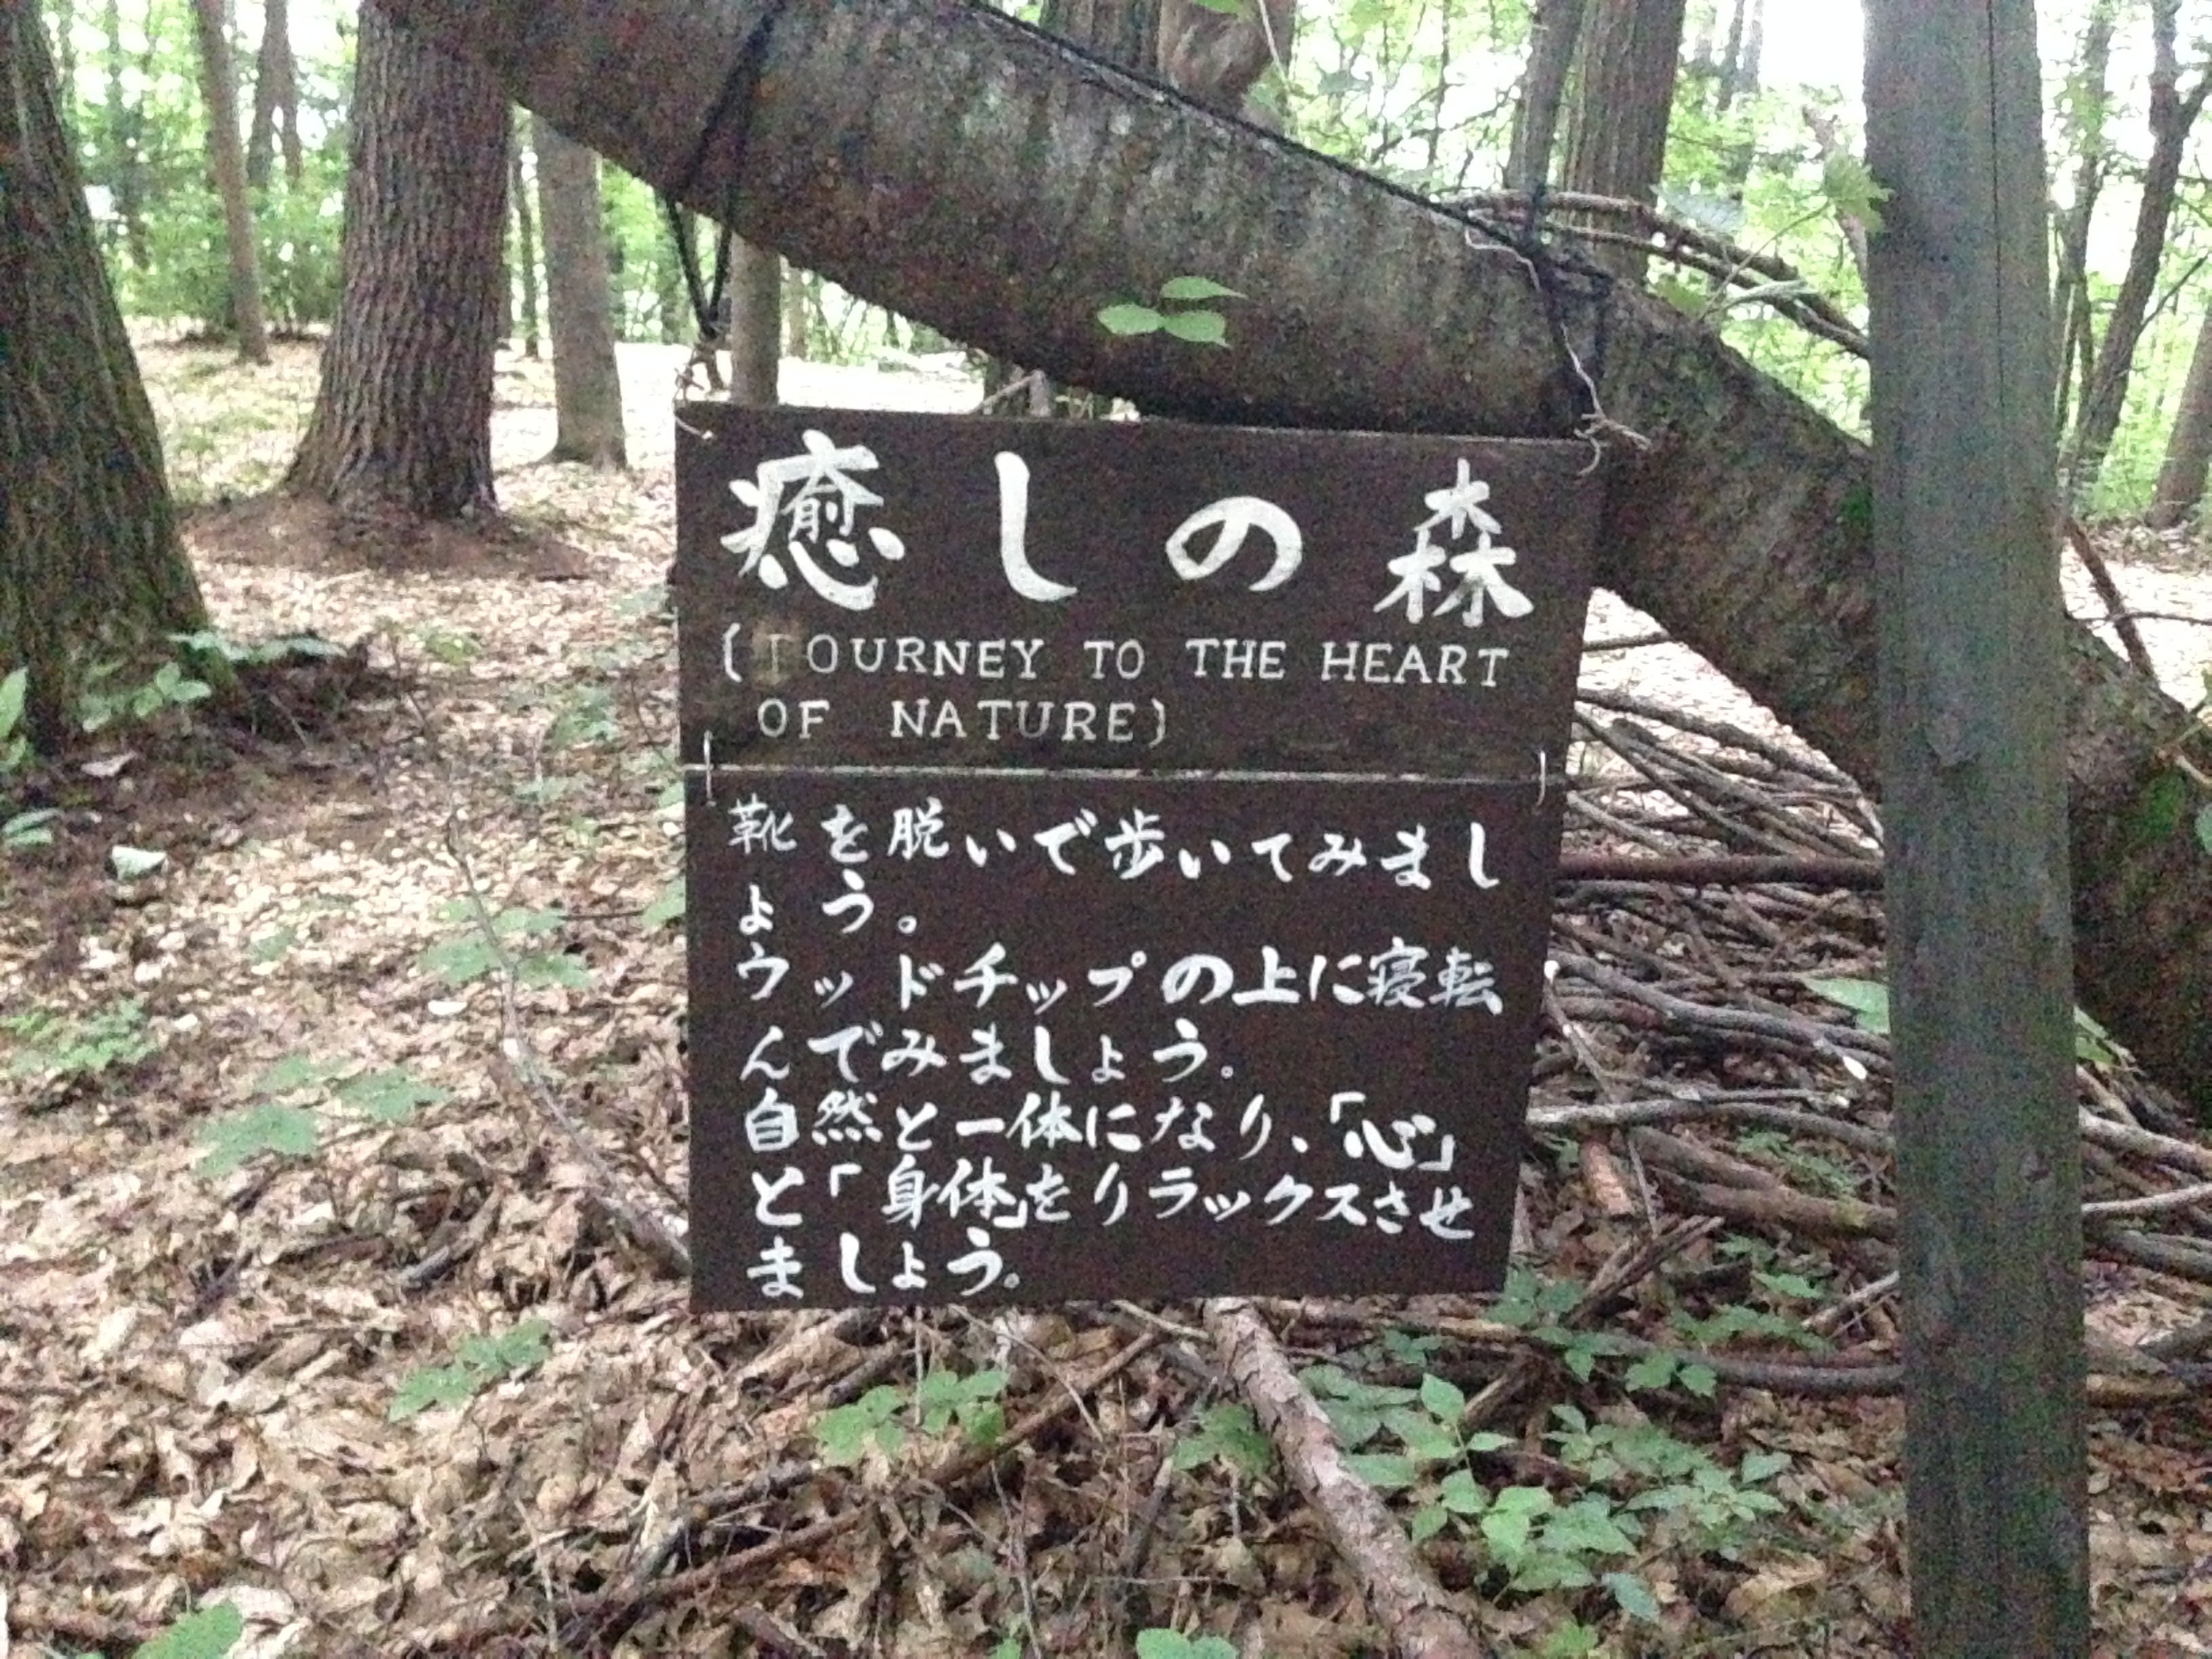 癒しの森
(JOURNEY TO THE HEART
OF NATURE)
靴を脱いで歩いてみまし
ょう。
ウッドチップの上に寝転
んでみましょう。
自然と一体になり、「心」
と「身体」をリラックスさせ
ましょう。